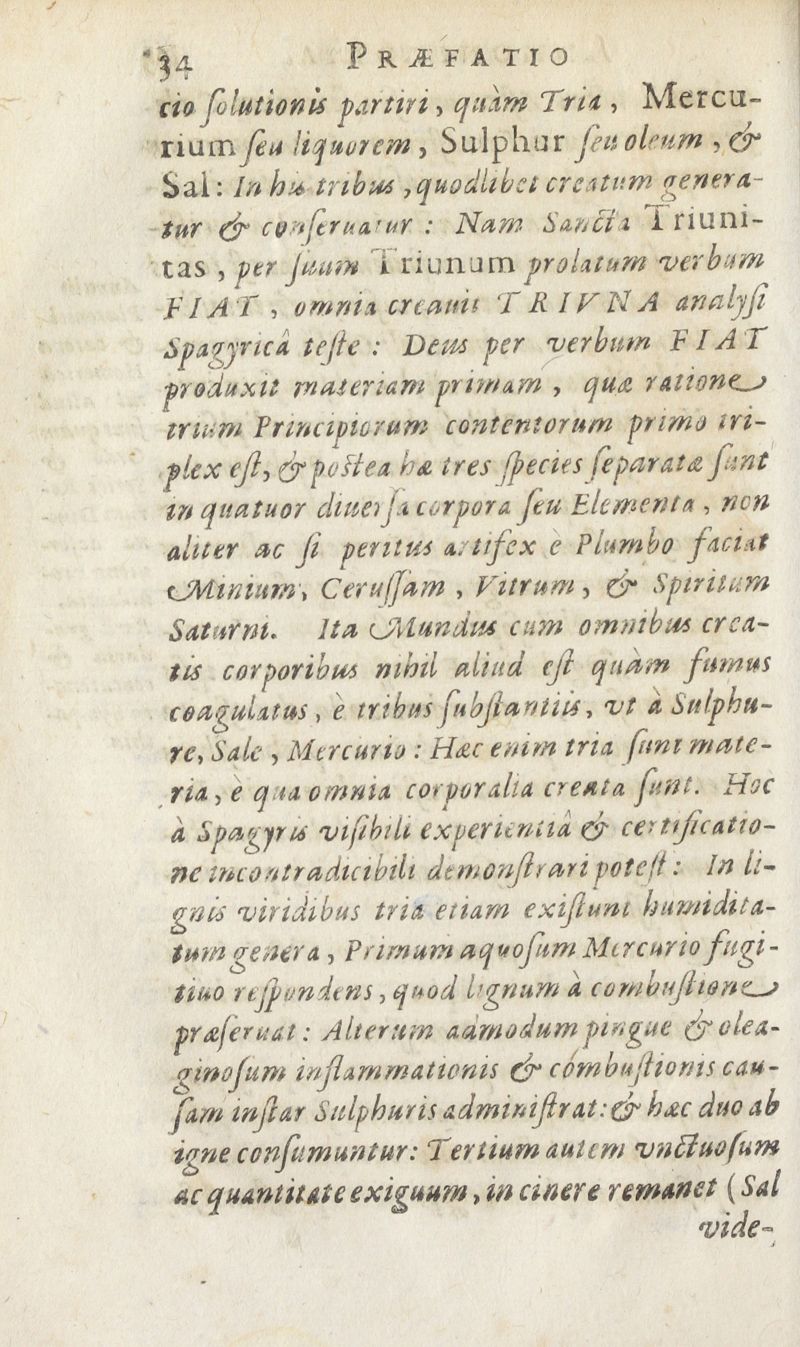 34 PRÆFATIO
cio ſolutionis partiri, quàm Tria, Mercu-
rium ſeu liquorem, Sulphur ſeu oleum, &
Sal: In his tribus, quodlibet creatum genera-
tur & conſeruatur: Nam Sancta Triuni-
tas, per ſuum Triunum prolatum verbum
FIAT, omnia creauit TRIVNA analyſi
Spagyricâ teſte: Deus per verbum FIAT
produxit materiam primam, quæ ratione
trium Principiorum contentorum primo tri-
plex eſt, & poſtea hæ tres ſpecies ſeparatæ ſunt
in quatuor diuerſa corpora ſeu Elementa, non
aliter ac ſi peritus artifex è Plumbo faciat
Minium, Ceruſſam, Vitrum, & Spiritum
Saturni. Ita Mundus cum omnibus crea-
tis corporibus nihil aliud eſt quàm fumus
coagulatus, è tribus ſubſtantiis, vt à Sulphu-
re, Sale, Mercurio: Hæc enim tria ſunt mate-
ria, è qua omnia corporalia creata ſunt. Hoc
à Spagyris viſibili experientiâ & certificatio-
ne incontradicibili demonſtrari poteſt: In li-
gnis viridibus tria etiam exiſtunt humidita-
tum genera, Primum aquoſum Mercurio fugi-
tiuo reſpondens, quod lignum à combuſtione
præſeruat: Alterum admodum pingue & olea-
ginoſum inflammationis & combuſtionis cau-
ſam inſtar Sulphuris adminiſtrat: & hæc duo ab
igne conſumuntur: Tertium autem vnctuoſum
ac quantitate exiguum, in cinere remanet (Sal
vide-